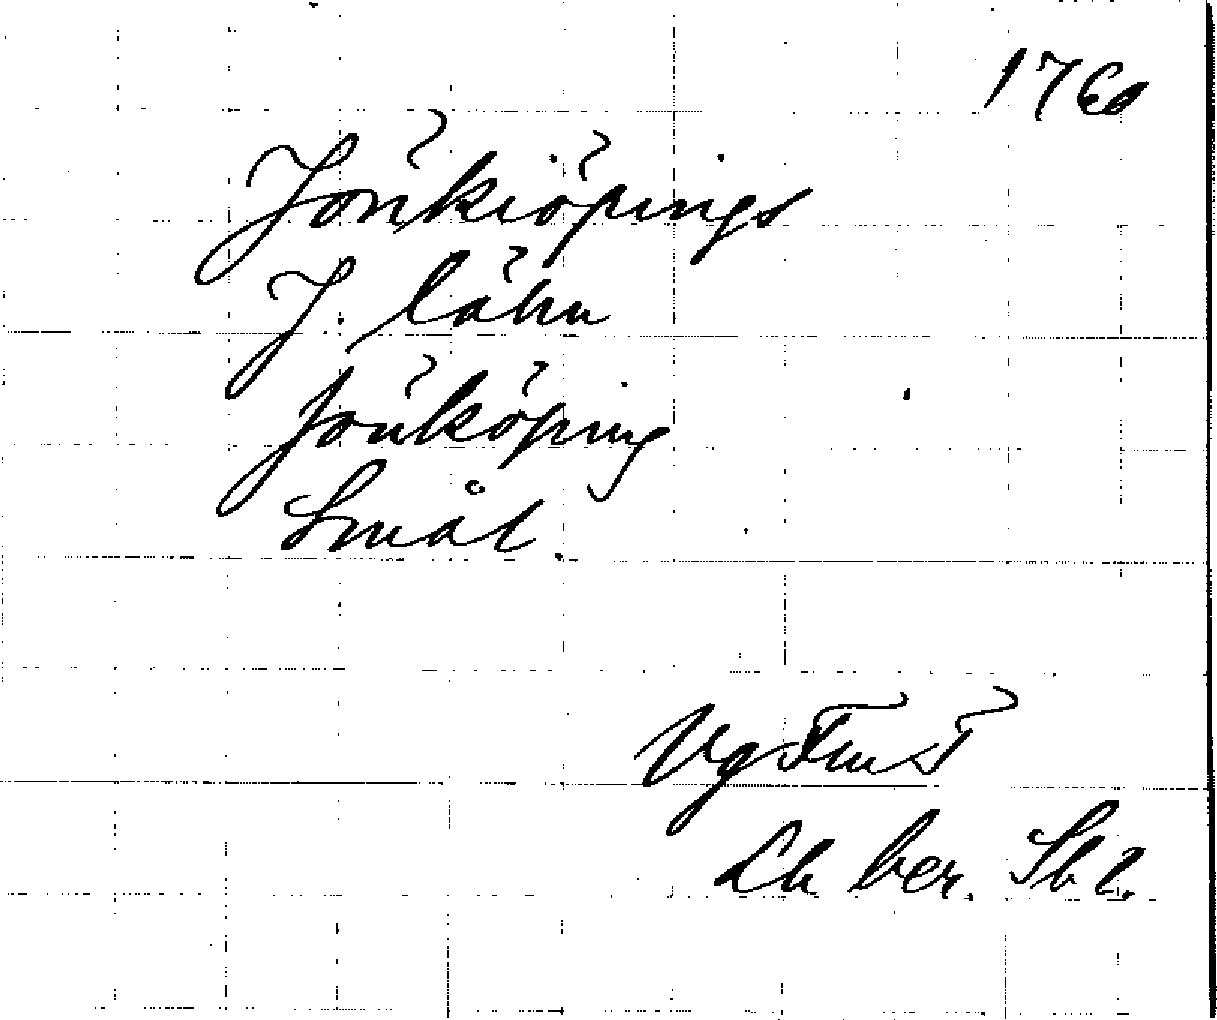 1760
Jönkiöpings
J. lähn
Jönköping
Smål.
Lh ber. Sbl.